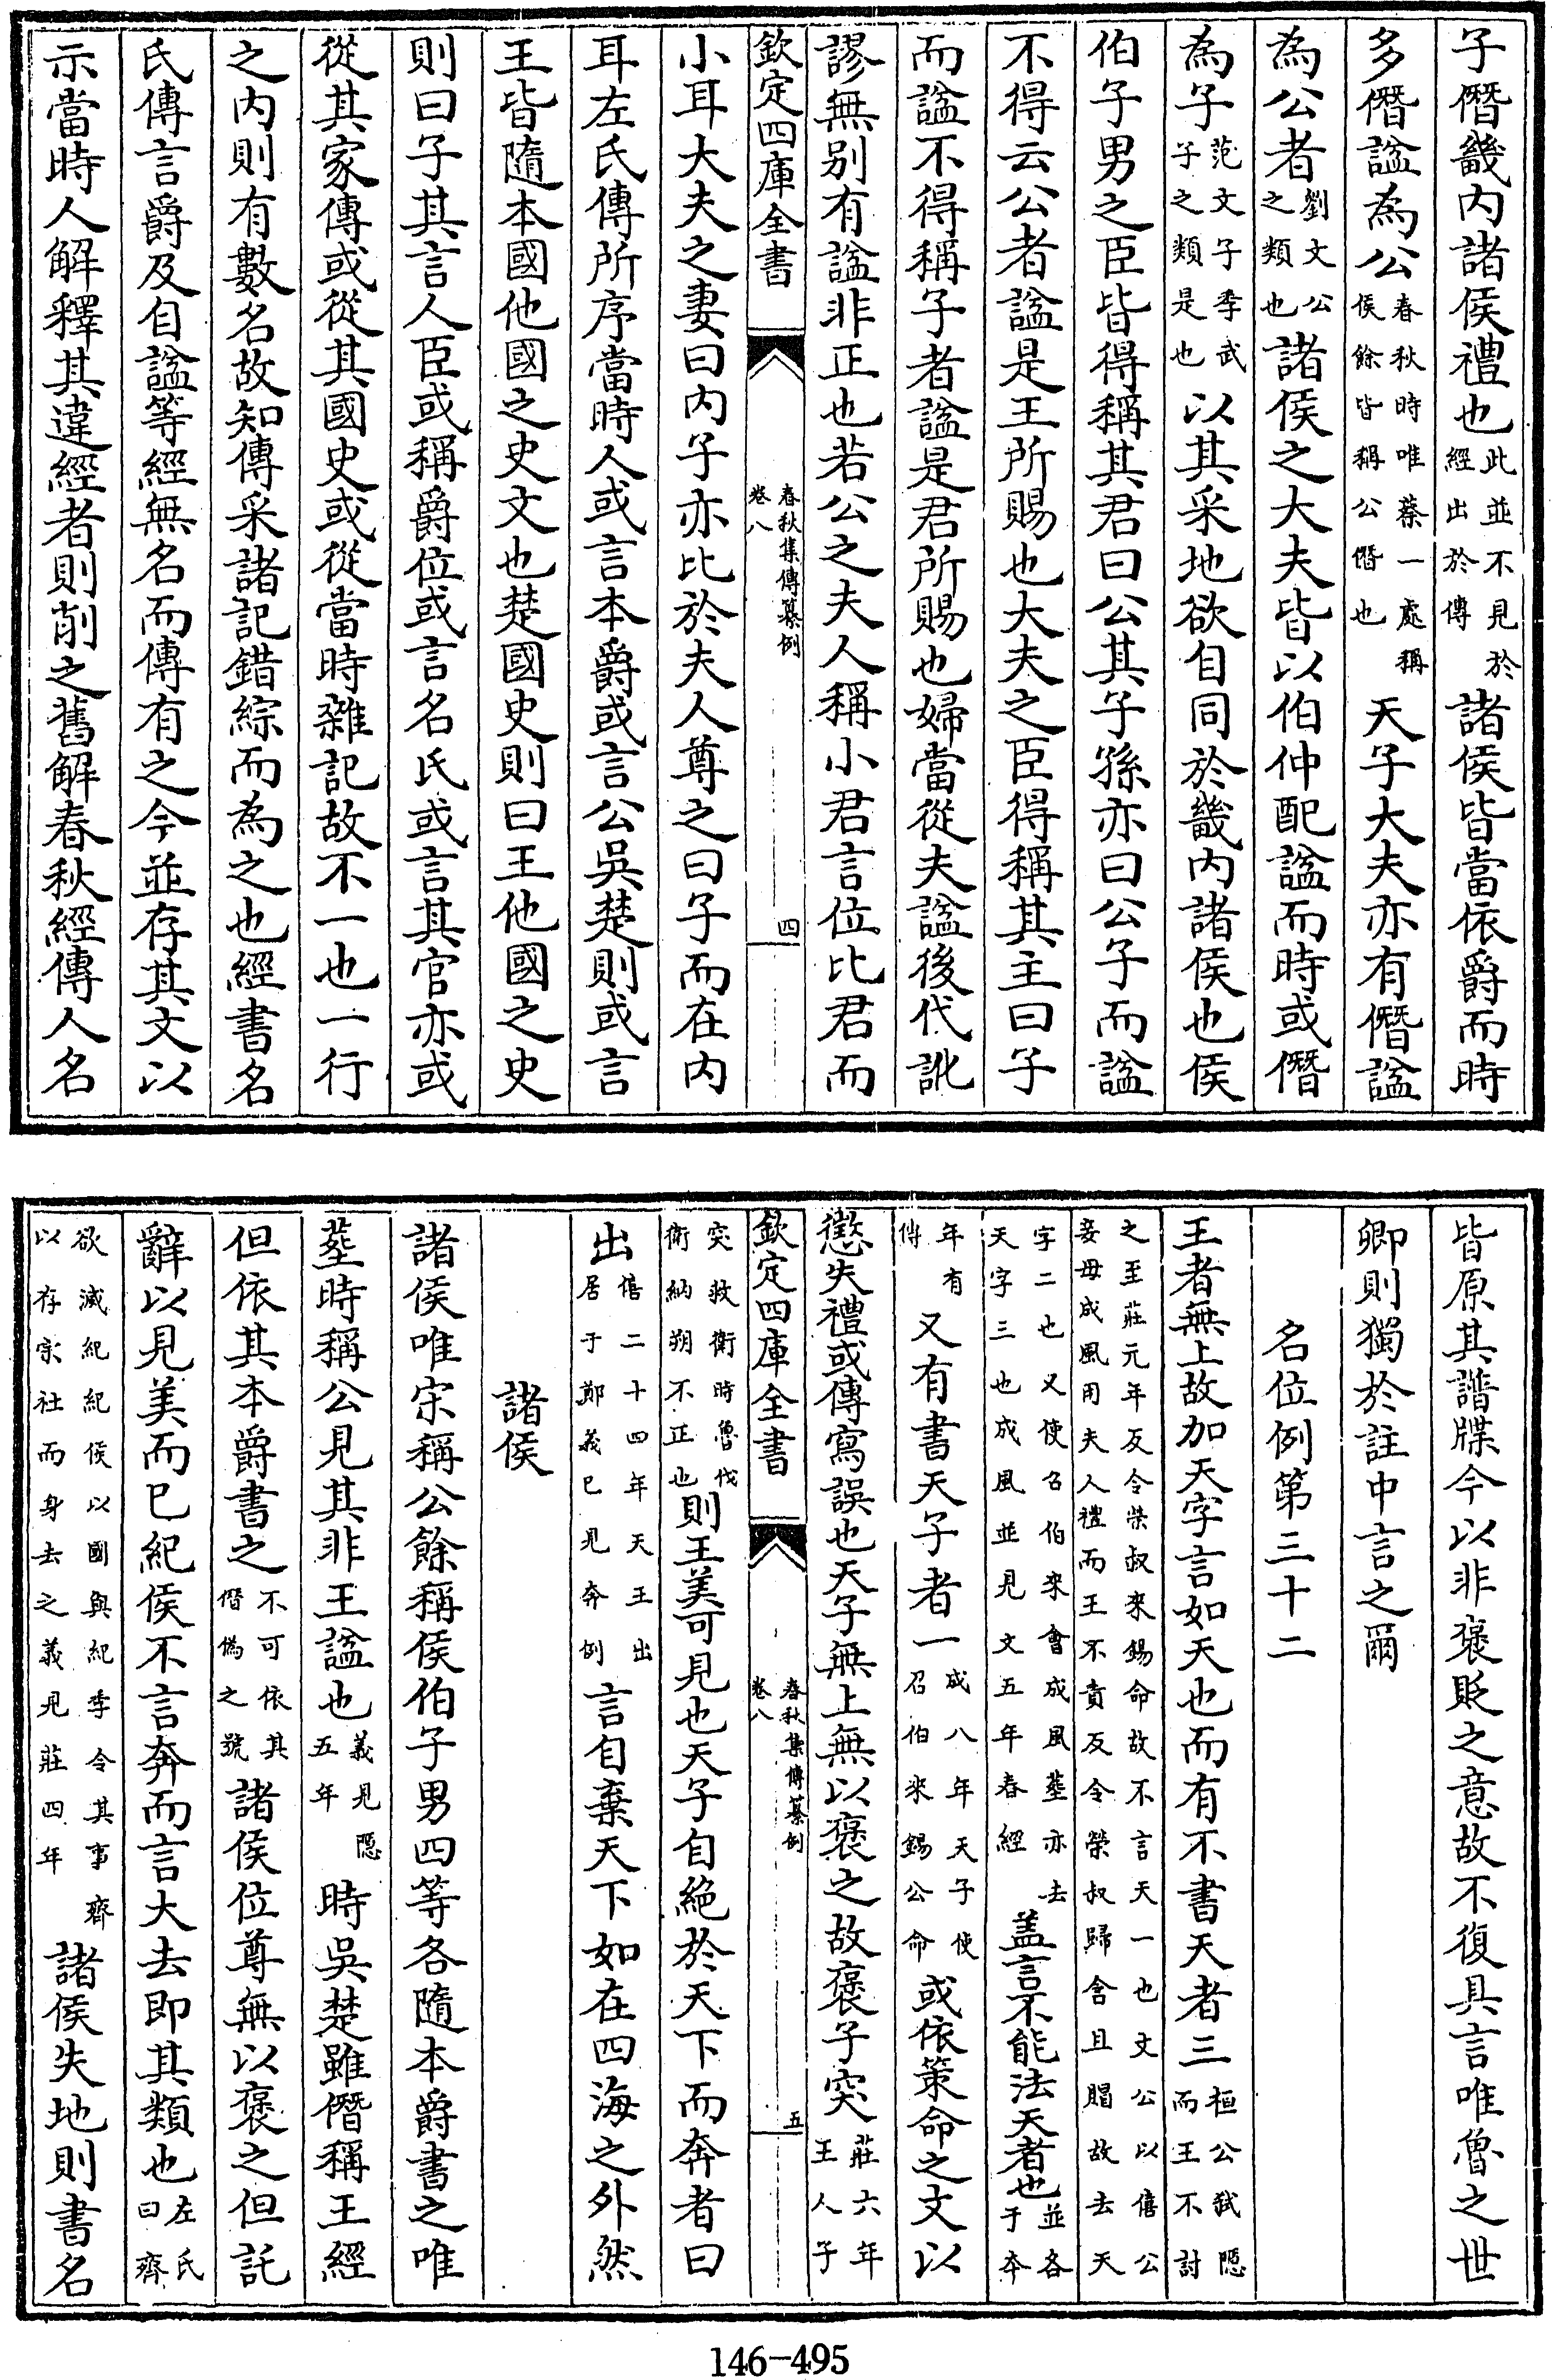 子僭畿内諸侯禮也此並不見於經出於傳諸侯皆當依爵而時
多僭諡為公春秋時唯蔡一處稱侯餘皆稱公僭也天子大夫亦有僭諡
為公者劉文公之類也諸侯之大夫皆以伯仲配諡而時或僭
為子范文子季武子之類是也以其采地欲自同於畿内諸侯也侯
伯子男之臣皆得稱其君曰公其子孫亦曰公子而諡
不得云公者諡是王所賜也大夫之臣得稱其主曰子
而諡不得稱子者諡是君所賜也婦當從夫諡後代訛
謬無别有諡非正也若公之夫人稱小君言位比君而
欽定四庫全書 春秋集傳纂例 卷八 四
小耳大夫之妻曰内子亦比於夫人尊之曰子而在内
耳左氏傳所序當時人或言本爵或言公吳楚則或言
王皆隨本國他國之史文也楚國史則曰王他國之史
則曰子其言人臣或稱爵位或言名氏或言其官亦或
從其家傳或從其國史或從當時雜記故不一也一行
之内則有數名故知傳采諸記錯綜而為之也經書名
氏傳言爵及自諡等經無名而傳有之今並存其文以
示當時人解釋其違經者則削之舊解春秋經傳人名
皆原其譜牒今以非褒貶之意故不復具言唯魯之世
卿則獨於註中言之爾
名位例第三十二
王者無上故加天字言如天也而有不書天者三桓公弒隠而王不討
之至莊元年反令榮叔來錫命故不言天一也文公以僖公妾母成風用夫人禮而王不責反令榮叔歸含且賵故去天
字二也又使召伯來會成風葬亦去天字三也成風並見文五年春經盖言不能法天者也並各于本
年有傳又有書天子者一成八年天子使召伯來錫公命或依策命之文以
懲失禮或傳寫誤也天子無上無以褒之故褒子突莊六年王人子
欽定四庫全書 春秋集傳纂例 卷八 五
突救衛時魯伐衛納朔不正也則王美可見也天子自絶於天下而奔者曰
出僖二十四年天王出居于鄭義已見奔例言自棄天下如在四海之外然
諸侯
諸侯唯宋稱公餘稱侯伯子男四等各隨本爵書之唯
葬時稱公見其非王諡也義見隠五年時吳楚雖僭稱王經
但依其本爵書之不可依其僭偽之號諸侯位尊無以褒之但託
辭以見美而已紀侯不言奔而言大去即其類也左氏曰齊
欲滅紀紀侯以國與紀季令其事齊以存宗社而身去之義見莊四年諸侯失地則書名
146-495